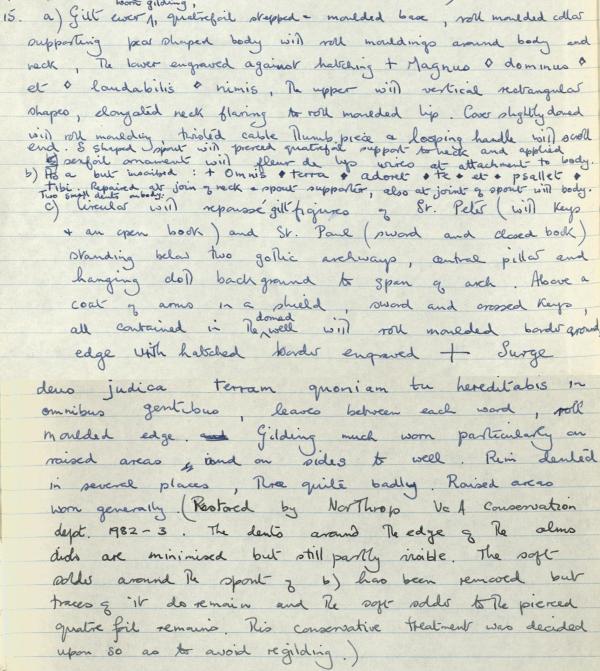 worn gilding,
15. a) Gilt ewer, quatrefoil stepped - moulded base, roll moulded collar
supporting pear shaped body with roll mouldings around body and
neck, The lower engraved against hatching + Magnus ◊ dominus ◊
et ◊ laudabilis ◊ nimis, The upper with vertical rectangular
shapes, elongated neck flaring to roll moulded lip. Cover slightly domed
with roll moulding, twisted cable thumbpiece a looping handle with scroll
end. S shaped spout with pierced quatrefoil support to neck and applied
sexfoil ornament with fleur de lys wires at attachment to body.
b) As a but inscribed: + Omnis ♦ terra ♦ adoret ♦ te ♦ et ♦ psallet ♦
tibi. Repaired at join of neck & spout supporter, also at joint of spout with body.
Two small dents in body.
c) Circular with repoussé gilt figures of St. Peter (with keys
+ an open book) and St. Paul (sword and closed book)
standing below two gothic archways, central pillar and
hanging doll background to span of arch. Above a
coat of arms in a shield, sword and crossed keys,
all contained in the domed well with roll moulded border around
edge with hatched border engraved + Surge
deus judica terram quoniam tu hereditabis in
omnibus gentibus, leaves between each word, roll
moulded edge. Gilding much worn particularly on
raised areas, and on sides to well. Rim dented
in several places, Three quite badly. Raised areas
worn generally. (Restored by Northrop V&A Conservation
dept. 1982-3. The dents around the edge of the alms
dish are minimised but still partly visible. The soft
solder around the spout of b) has been removed but
traces of it do remain and the soft solder to the pierced
quatre foil remains. This conservative treatment was decided
upon so as to avoid regilding.)